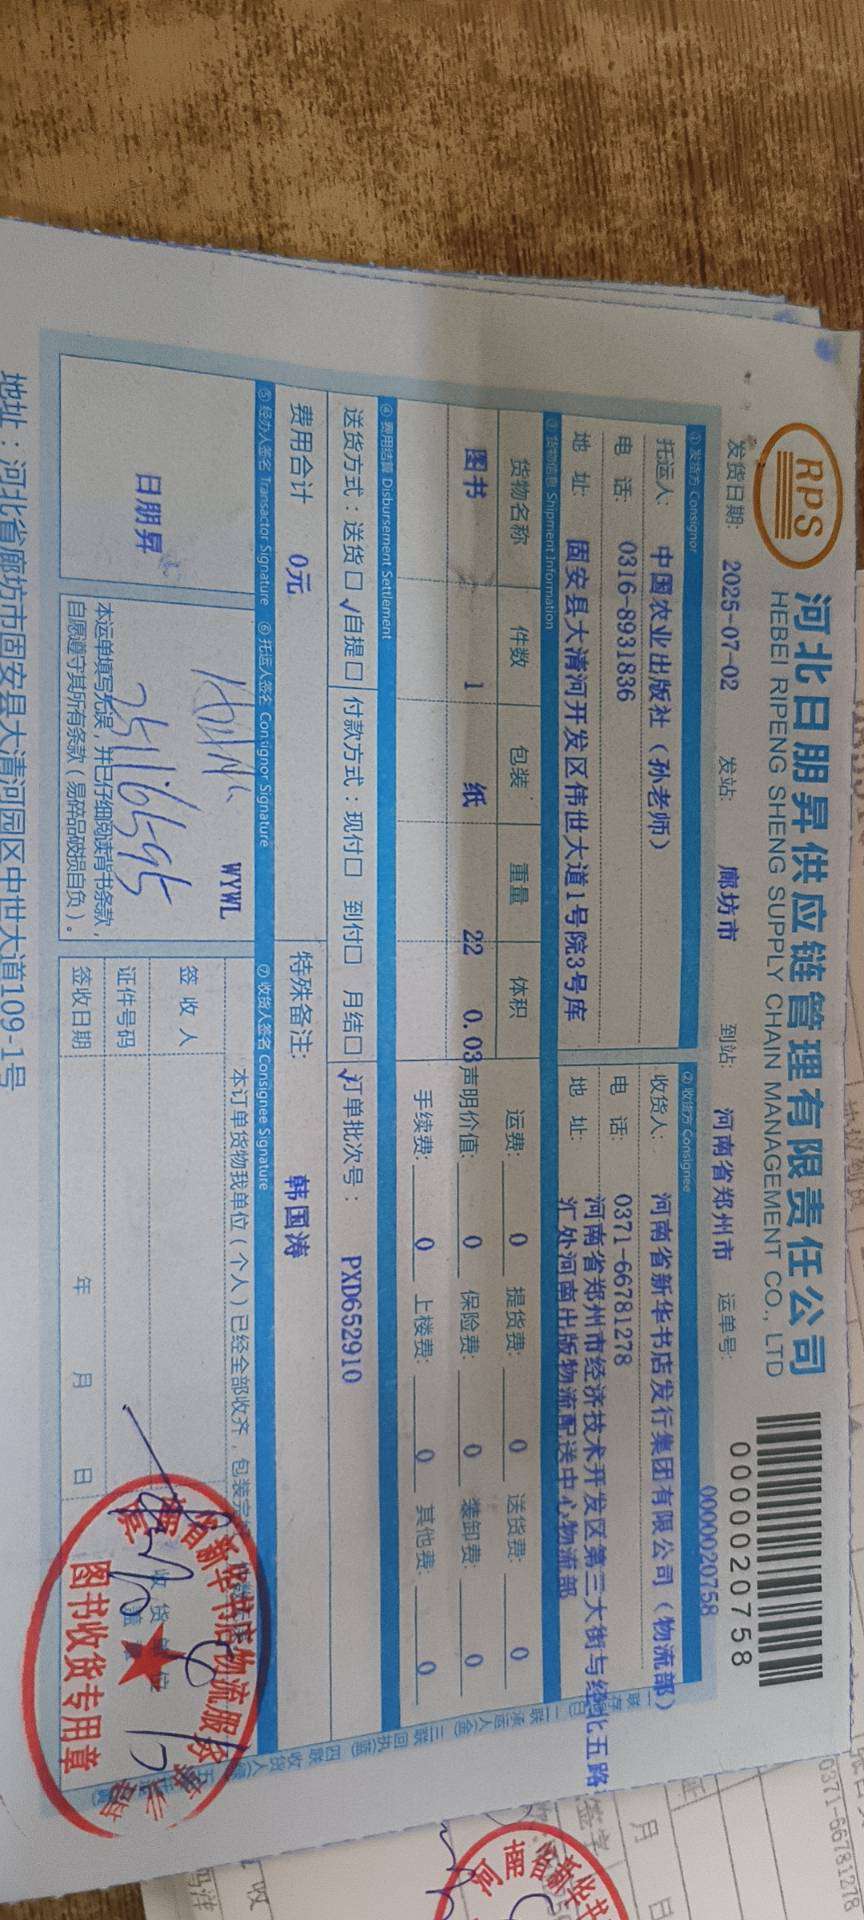 RPS
河北日朋昇供应链管理有限责任公司
HEBEI RIPENG SHENG SUPPLY CHAIN MANAGEMENT CO., LTD
0000020758
0000020758
发货日期: 2025-07-02 发站: 廊坊市 到站: 河南省郑州市 运单号:
① 发货方 Consignor ② 收货方 Consignee
托运人: 中国农业出版社（孙老师） 收货人: 河南省新华书店发行集团有限公司（物流部）
电 话: 0316-8931836 电 话: 0371-66781278
地 址: 固安县大清河开发区伟世大道1号院3号库 地 址: 河南省郑州市经济技术开发区第三大街与经北五路
汇处河南出版物流配送中心物流部
③ 货物信息 Shipment Information
货物名称 件数 包装 重量 体积 运费: 0 提货费: 0 送货费: 0
图书 1 纸 22 0.03 声明价值: 0 保险费: 0 装卸费: 0
手续费: 0 上楼费: 0 其他费: 0
④ 费用结算 Disbursement Settlement
送货方式：送货□ ✓自提□ 付款方式：现付□ 到付□ 月结□ ✓ 订单批次号： PXD652910
费用合计 0元 特殊备注: 韩国涛
⑤ 经办人签名 Transactor Signature ⑥ 托运人签名 Consignor Signature ⑦ 收货人签名 Consignee Signature
日朋昇
WYWL
本运单填写无误，并已仔细阅读背书条款，
自愿遵守其所有条款（易碎品破损自负）。
本订单货物我单位（个人）已经全部收齐，包装完
签 收 人
证件号码
签收日期 年 月 日
收货单位
省新华书店物流服务
图书收货专用章
地址：河北省廊坊市固安县大清河园区中世大道109-1号
0371-66781278
月 日
签字
收
河南省新华书